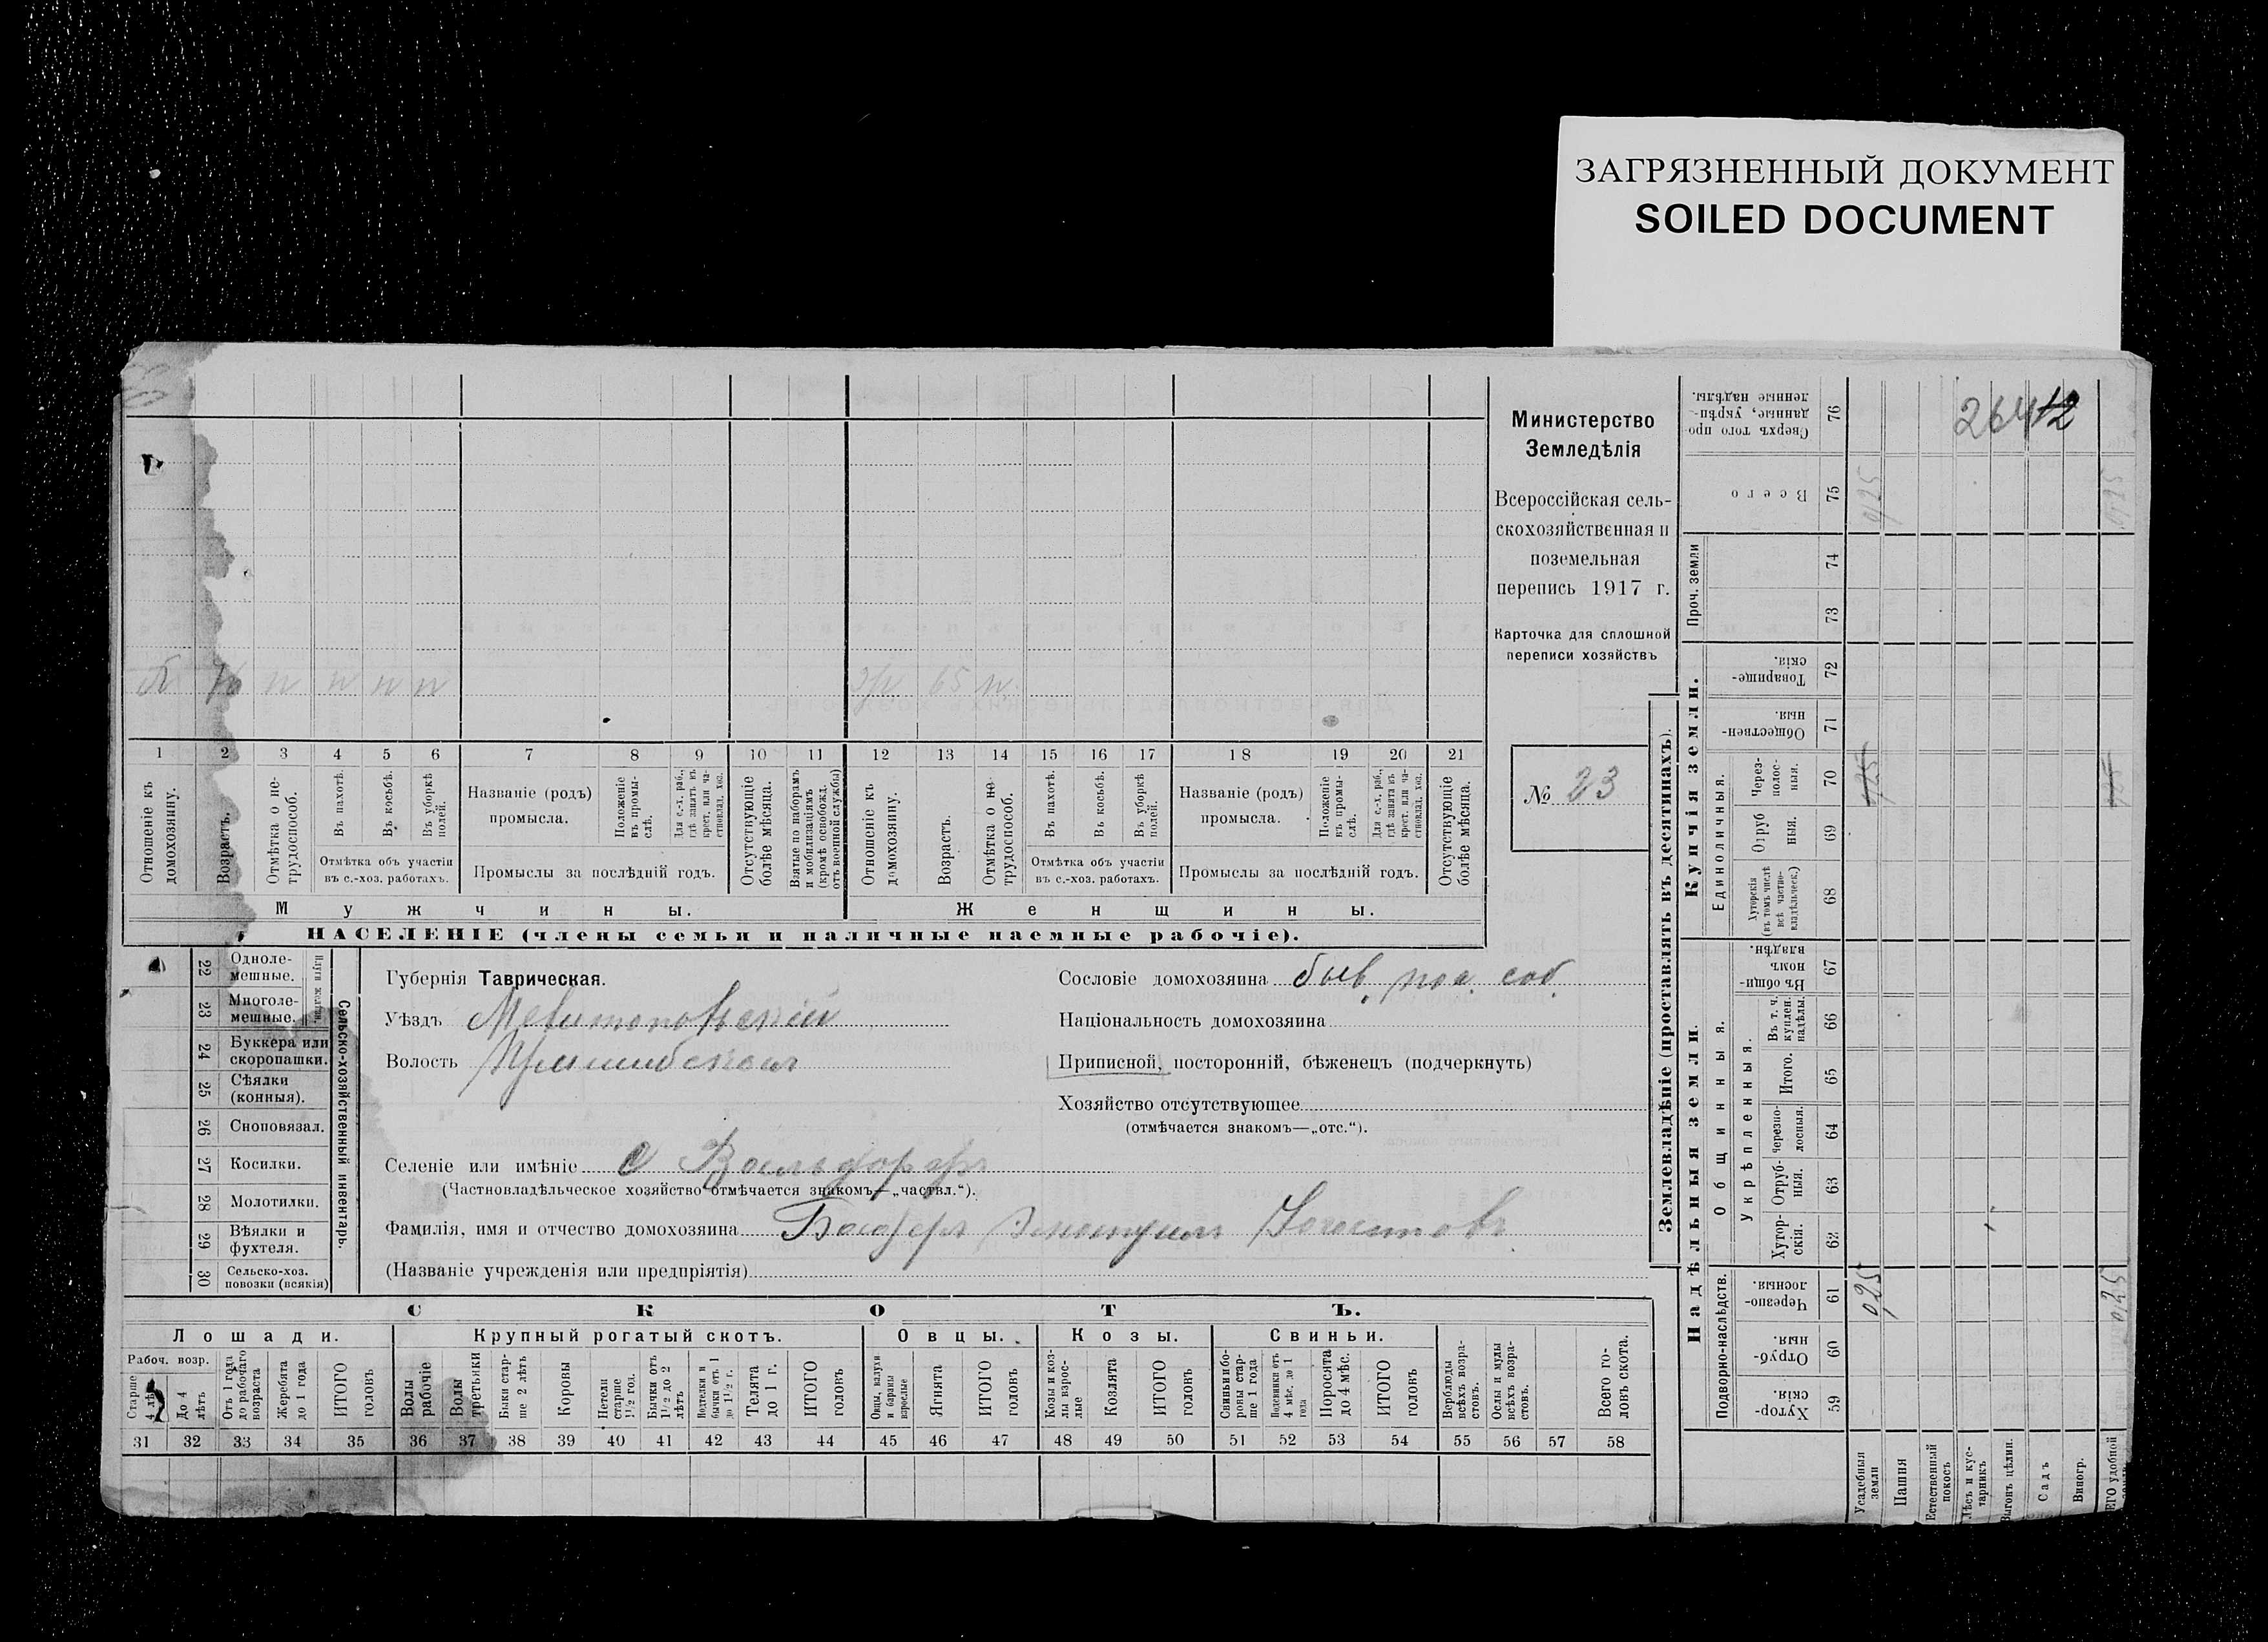 ЗАГРЯЗНЕННЫЙ ДОКУМЕНТ
SOILED DOCUMENT
Министерство
Земледѣлія
Всероссійская сель-
скохозяйственная и
поземельная
перепись 1917 г.
Карточка для сплошной
переписи хозяйствъ
№ 23
х 76 п п п п
65 п.
1 2 3 4 5 6 7 8 9 10 11 12 13 14 15 16 17 18 19 20 21
Отношеніе къ домохозяину.
Возрастъ.
Отмѣтка о не-трудоспособ.
Въ пахотѣ.
Въ косьбѣ.
Въ уборкѣ полей.
Отмѣтка объ участіи
въ с.-хоз. работахъ.
Названіе (родъ)
промысла.
Положеніе въ промы-слѣ.
Для с.-х. раб., гдѣ занятъ въ крест. или ча-стновлад. хоз.
Промыслы за послѣдній годъ.
Отсутствующіе болѣе мѣсяца.
Взятые по наборамъ и мобилизаціямъ (кромѣ освобожд. отъ военной службы)
Отношеніе къ домохозяину.
Возрастъ.
Отмѣтка о не-трудоспособ.
Въ пахотѣ.
Въ косьбѣ.
Въ уборкѣ полей.
Отмѣтка объ участіи
въ с.-хоз. работахъ.
Названіе (родъ)
промысла.
Положеніе въ промы-слѣ.
Для с.-х. раб., гдѣ занята въ крест. или ча-стновлад. хоз.
Промыслы за послѣдній годъ.
Отсутствующіе болѣе мѣсяца.
Мужчины.
Женщины.
НАСЕЛЕНІЕ (члены семьи и наличные наемные рабочіе).
22 Одноле-мешные.
23 Многоле-мешные.
24 Буккера или скоропашки.
25 Сѣялки (конныя).
26 Сноповязал.
27 Косилки.
28 Молотилки.
29 Вѣялки и фухтеля.
30 Сельско-хоз. повозки (всякія)
Сельско-хозяйственный инвентарь.
Губернія Таврическая.
Уѣздъ Мелитопольскій
Волость Пришибская
Сословіе домохозяина быв. пос. соб.
Національность домохозяина
Приписной, посторонній, бѣженецъ (подчеркнуть)
Хозяйство отсутствующее
(отмѣчается знакомъ—„отс.“).
Селеніе или имѣніе с Вальдорфъ
(Частновладѣльческое хозяйство отмѣчается знакомъ—„частвл.“).
Фамилія, имя и отчество домохозяина
(Названіе учрежденія или предпріятія)
СКОТЪ.
Лошади.
Крупный рогатый скотъ.
Овцы.
Козы.
Свиньи.
Рабоч. возр.
Старше 4 лѣтъ
До 4 лѣтъ
Отъ 1 года до рабочаго возраста
Жеребята до 1 года
ИТОГО головъ
Волы рабочіе
Волы третьяки
Быки стар-ше 2 лѣтъ
Коровы
Нетели старше 1½ год.
Бычки отъ 1½ до 2 лѣтъ
Нетелки и бычки отъ 1 до 1½ г.
Телята до 1 г.
ИТОГО головъ
Овцы, валухи и бараны взрослые
Ягнята
ИТОГО головъ
Козы и коз-лы взрос-лые
Козлята
ИТОГО головъ
Свиньи и бо-ровы стар-ше 1 года
Подсвинки отъ 4 мѣс. до 1 года
Поросята до 4 мѣс.
ИТОГО головъ
Верблюды всѣхъ возра-стовъ.
Ослы и мулы всѣхъ возра-стовъ.
Всего го-ловъ скота.
31 32 33 34 35 36 37 38 39 40 41 42 43 44 45 46 47 48 49 50 51 52 53 54 55 56 57 58
Землевладѣніе (проставлять въ десятинахъ).
Надѣльныя земли.
Купчія земли.
Проч. земли
Подворно-наслѣдств.
Общинныя.
Укрѣпленныя.
Единоличныя.
76 Сверхъ того про-данные, укрѣп-ленные надѣлы.
75 Всего
74
73
72 Товарище-скія.
71 Обществен-ныя.
70 Через-полос-ныя.
69 Отруб-ныя.
68 Хуторскія (въ томъ числѣ всѣ частно-владѣльческ.)
67 Въ общин-номъ владѣн.
66 Въ т. ч. куплен. надѣлы.
65 Итого.
64 Черезпо-лосныя.
63 Отруб-ныя.
62 Хутор-скія.
61 Черезпо-лосныя.
60 Отруб-ныя.
59 Хутор-скія.
Усадебныя земли
Пашня
Естественный покосъ
Лѣсъ и кус-тарникъ
Выгонъ цѣлин.
Садъ
Виногр.
264 12
0,25
0,25